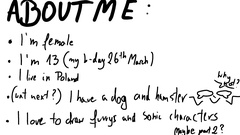 ABOUT ME:
• I'm female
• I'm 13 (my b-day 26th March)
• I live in Poland
• (wut next?) I have a dog and hamster
why 2 tails?
• I love to draw furrys and sonic characters
maybe part 2?